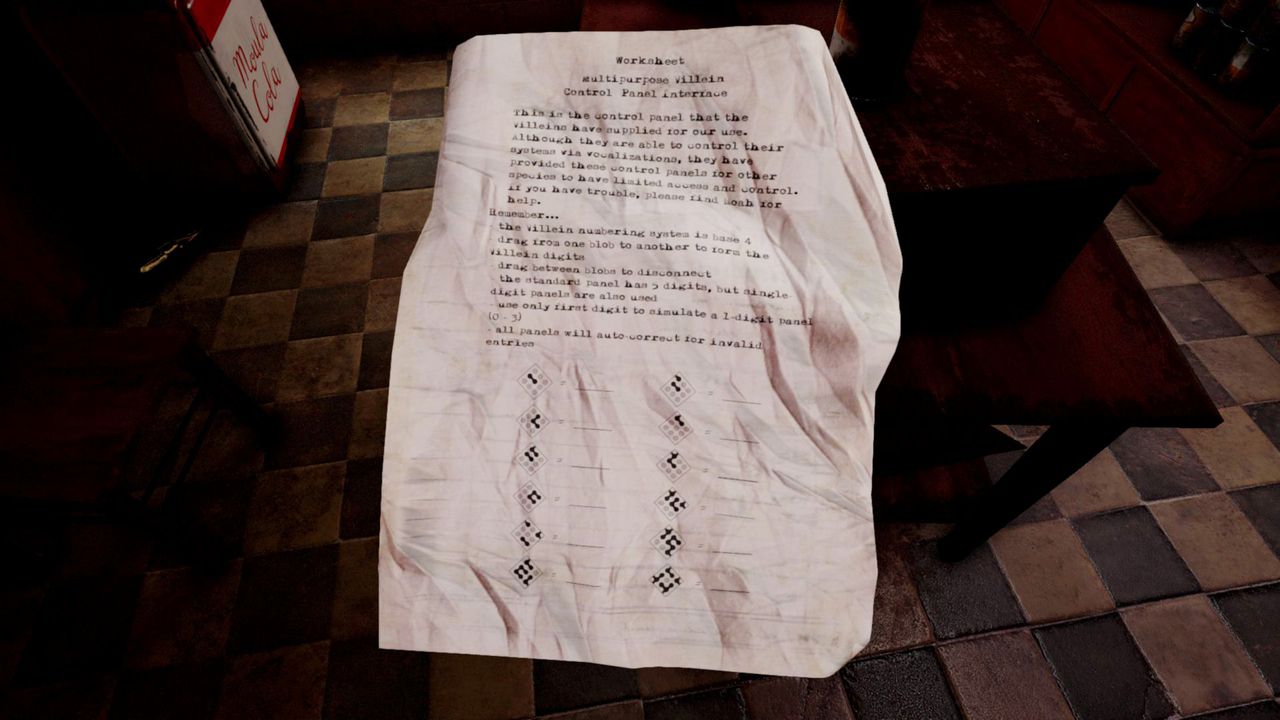 Moula
Cola
Worksheet
Multipurpose Villein
Control Panel Interface
This is the control panel that the
Villeins have supplied for our use.
Although they are able to control their
systems via vocalizations, they have
provided these control panels for other
species to have limited access and control.
If you have trouble, please find Noah for
help.
Remember...
- the Villein numbering system is base 4
- drag from one blob to another to form the
Villein digits
- drag between blobs to disconnect
- the standard panel has 5 digits, but single-
digit panels are also used
- use only first digit to simulate a 1-digit panel
(0 - 3)
- all panels will auto-correct for invalid
entries
= ____ = ____
= ____ = ____
= ____ = ____
= ____ = ____
= ____ = ____
= ____ = ____